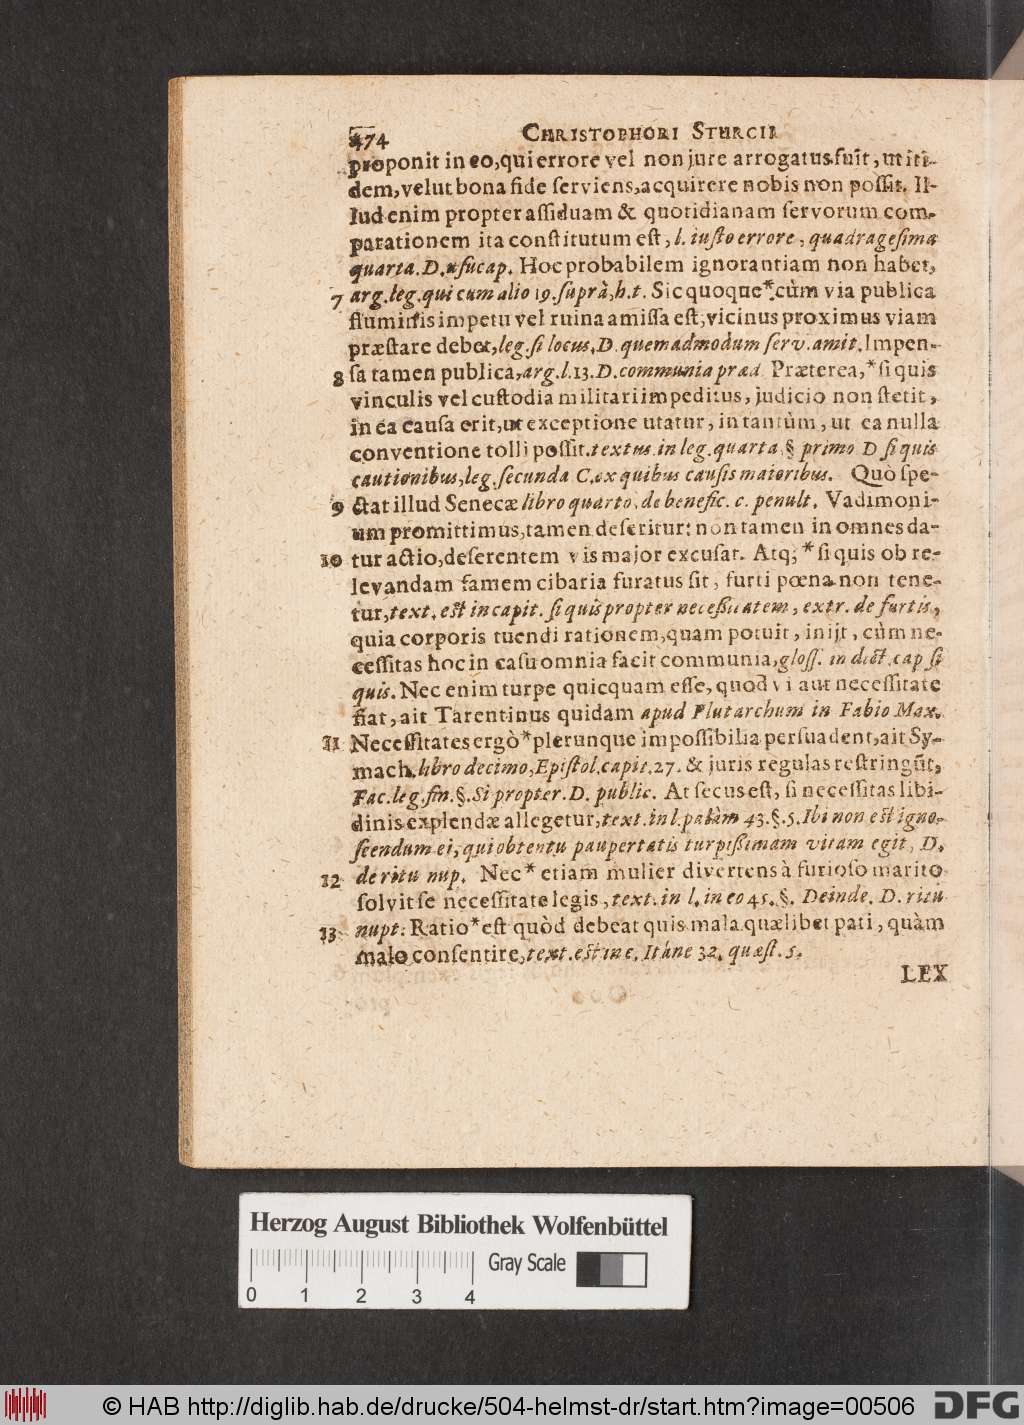 474 CHRISTOPHORI STURCII
proponit in eo, qui errore vel non jure arrogatus fuit, ut iti-
dem, velut bona fide ſerviens, acquirere nobis non poſſit. Il-
lud enim propter aſſiduam & quotidianam ſervorum com-
parationem ita conſtitutum eſt, l. iuſto errore, quadrageſima
quarta. D. uſucap. Hoc probabilem ignorantiam non habet,
7 arg. leg. qui cum alio 19. ſuprà, h. t. Sic quoque * cùm via publica
fluminis impetu vel ruina amiſſa eſt, vicinus proximus viam
præſtare debet, leg. ſi locus. D. quemadmodum ſerv. amit. Impen-
8 ſa tamen publica, arg. l. 13. D. communia præd. Præterea, * ſi quis
vinculis vel cuſtodia militari impeditus, judicio non ſtetit,
in ea cauſa erit, ut exceptione utatur, in tantùm, ut ea nulla
conventione tolli poſſit. textus in leg. quarta § primo D ſi quis
cautionibus, leg. ſecunda C. ex quibus cauſis maioribus. Quò ſpe-
9 ctat illud Senecæ libro quarto, de benefic. c. penult. Vadimoni-
um promittimus, tamen deſeritur: non tamen in omnes da-
10 tur actio, deſerentem vis major excuſat. Atq; * ſi quis ob re-
levandam famem cibaria furatus ſit, furti pœna non tene-
tur, text. eſt in capit. ſi quis propter neceßitatem, extr. de furtis,
quia corporis tuendi rationem, quam potuit, inijt, cùm ne-
ceſſitas hoc in caſu omnia facit communia, gloſſ. in dict. cap ſi
quis. Nec enim turpe quicquam eſſe, quod vi aut neceſſitate
fiat, ait Tarentinus quidam apud Plutarchum in Fabio Max.
11 Neceſſitates ergò * plerunque impoſſibilia perſuadent, ait Sy-
mach. libro decimo, Epiſtol. capit. 27. & juris regulas reſtringūt,
Fac. leg. fin. §. Si propter. D. public. At ſecus eſt, ſi neceſſitas libi-
dinis explendæ allegetur, text. in l. palàm 43. §. 5. Ibi non eſt igno-
ſcendum ei, qui obtentu paupertatis turpißimam vitam egit, D.
12 de ritu nup. Nec * etiam mulier divertens à furioſo marito
ſolvit ſe neceſſitate legis, text. in l. in eo 45. §. Deinde. D. ritu
13 nupt: Ratio * eſt quòd debeat quis mala quælibet pati, quàm
malo conſentire, text. eſt in c. Itáne 32. quæſt. 5.
LEX
Herzog August Bibliothek Wolfenbüttel
Gray Scale
0 1 2 3 4
© HAB http://diglib.hab.de/drucke/504-helmst-dr/start.htm?image=00506
DFG